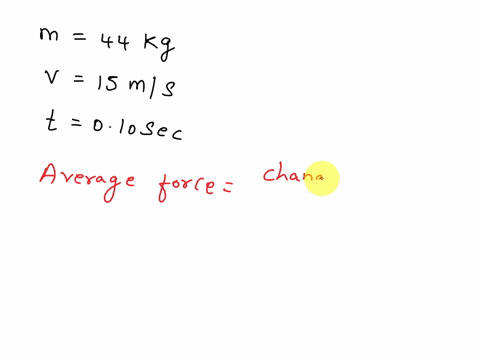 m = 44 kg
v = 15 m/s
t = 0.10 sec
Average force = chang